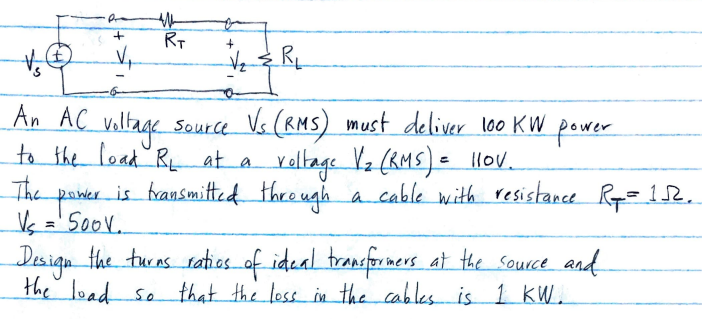 + R_T +
V_s ± V_1 V_2 R_L
- -
An AC voltage source Vs (RMS) must deliver 100 KW power
to the load R_L at a voltage V_2 (RMS) = 110V.
The power is transmitted through a cable with resistance R_T = 1Ω.
Vs = 500V.
Design the turns ratios of ideal transformers at the source and
the load so that the loss in the cables is 1 KW.